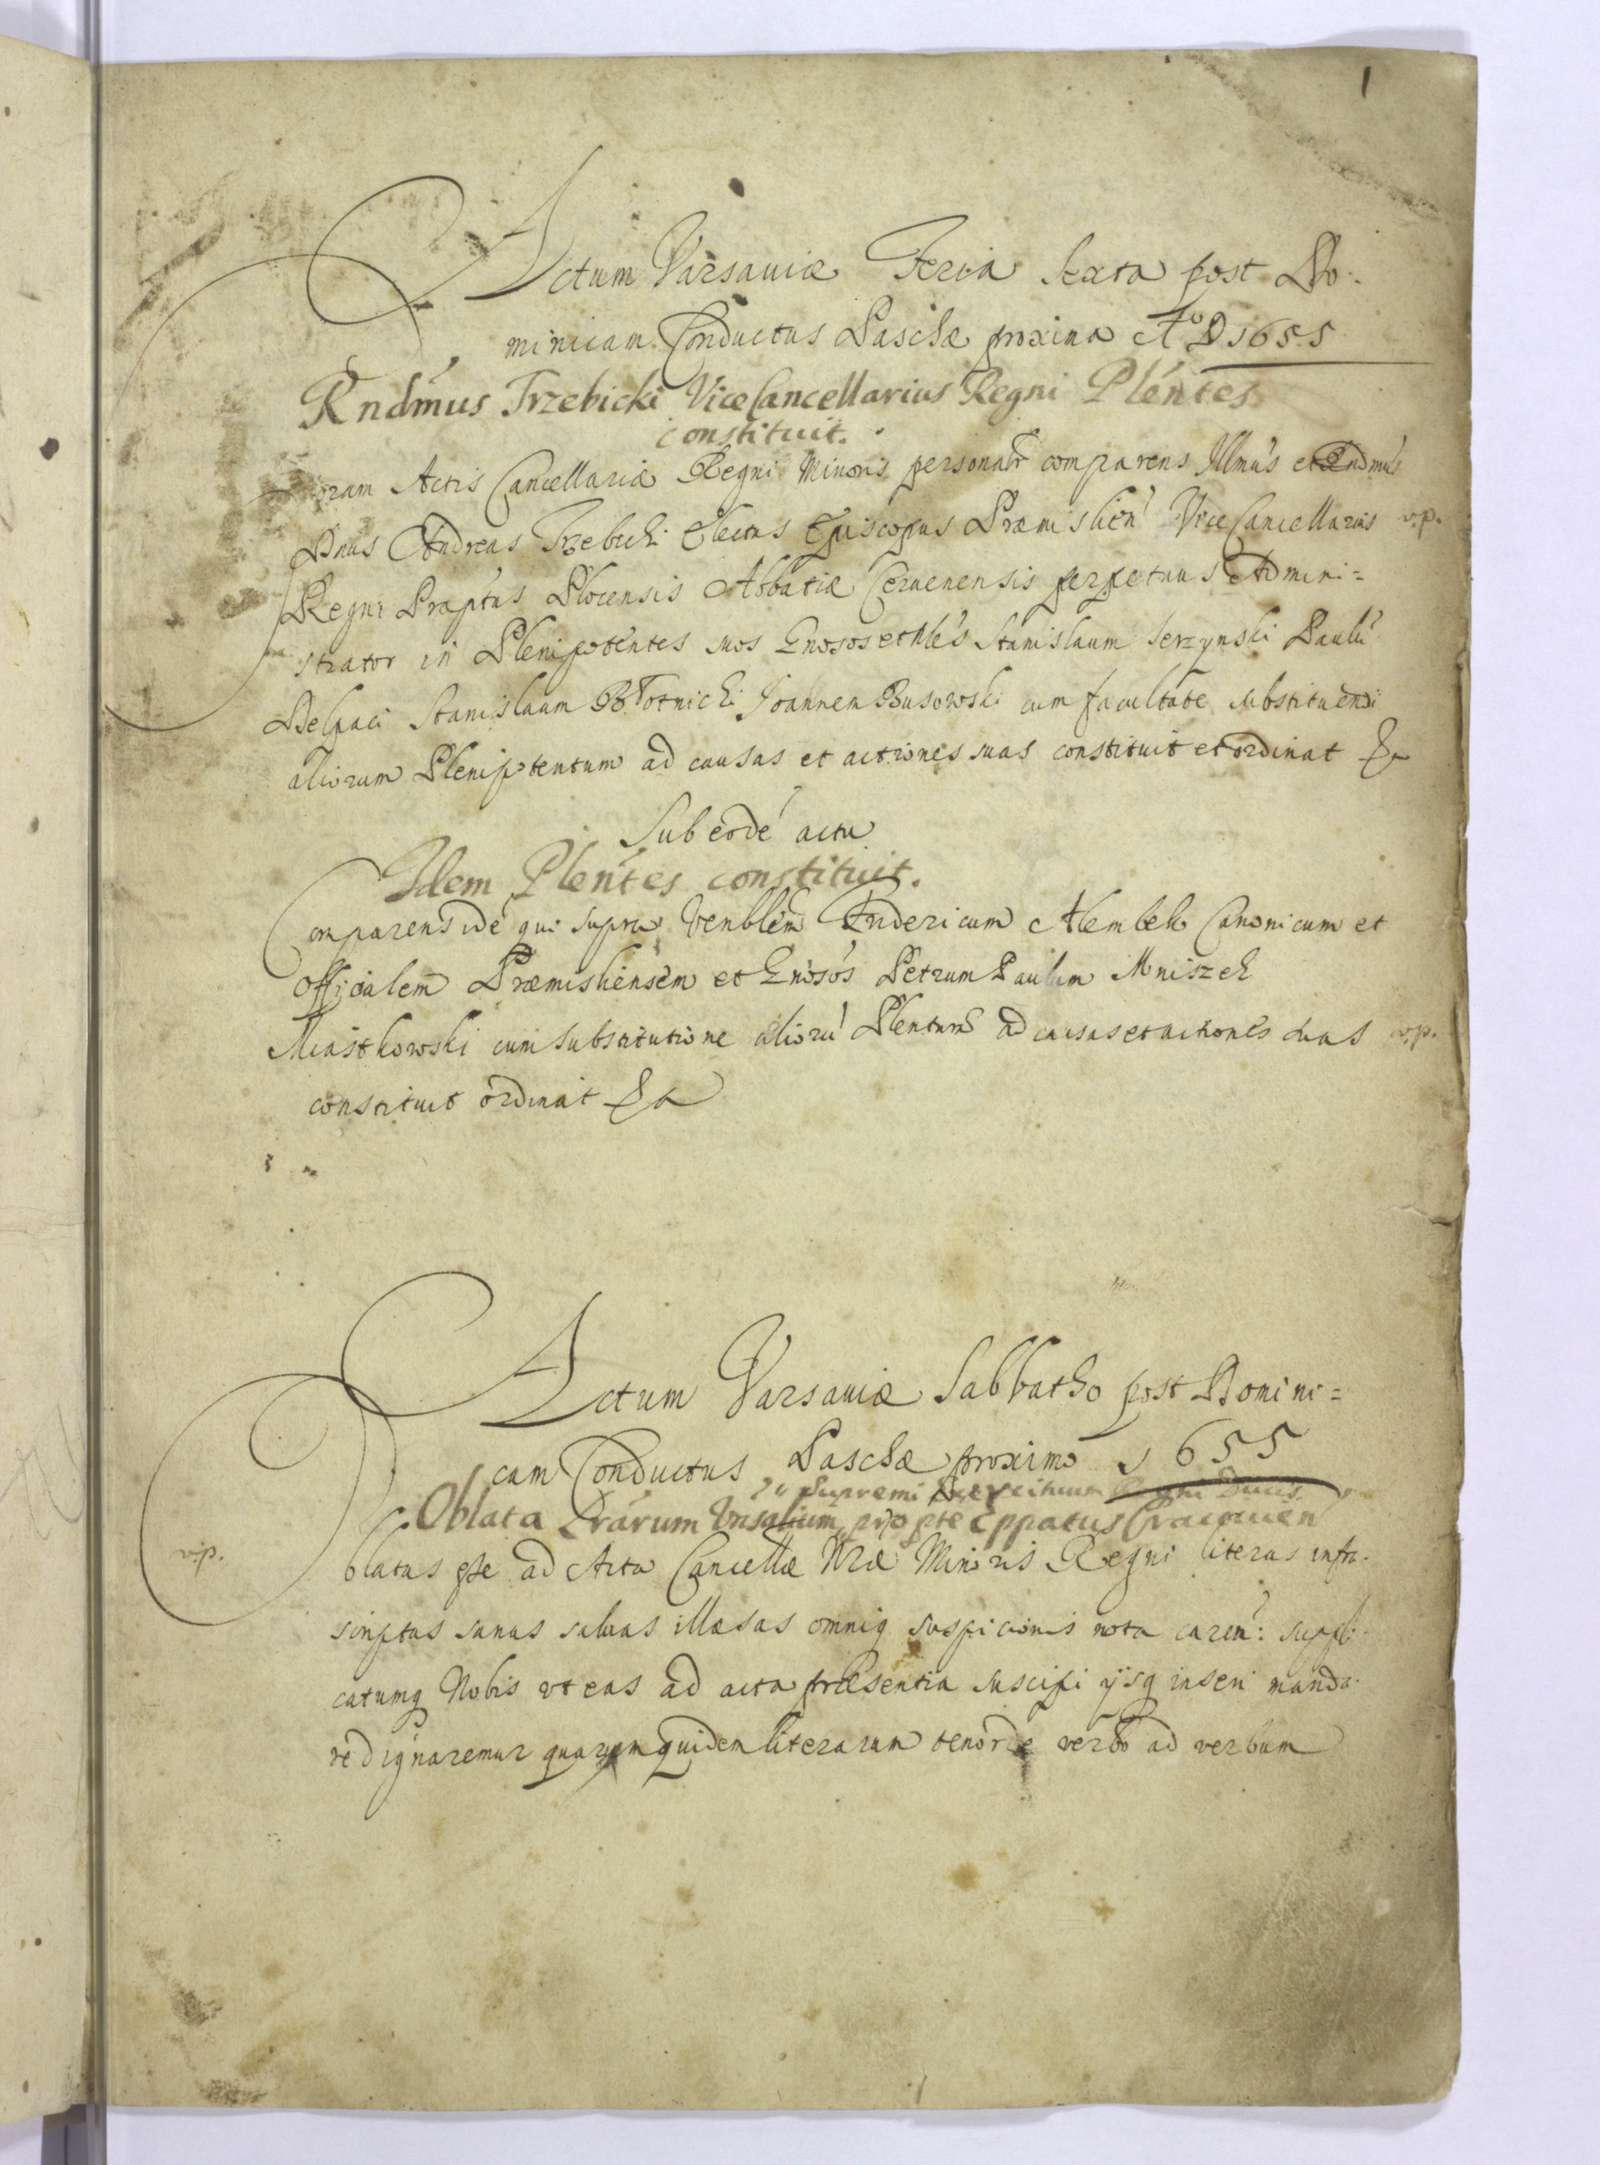 1
Actum Varsaviæ Feria sexta post Do:
minicam Conductus Paschæ proxima Aº D 1655
Rndmus Trzebicki ViceCancellarius Regni Plentes
constituit.
Coram Actis Cancellariæ Regni Minoris personalr comparens Illmus et Rndmus
Dnus Andreas Trzebicki Electus Episcopus Præmislien ViceCancellarius v.p.
Regni Præptus Plocensis Abbatiæ Cervenensis perpetuus Admini=
strator in Plenipotentes suos Gnosos et Nles Stanislaum Serzynski Paulu
Delpaci Stanislaum Błotnicki Joannem Busowski cum facultate substituendi
aliorum Plenipotentum ad causas et actiones suas constituit et ordinat &
Sub eode actu
Idem Plentes constituit.
Comparens ide qui supra Venblem Fridericum Alembek Canonicum et
Officialem Præmisliensem et Gnosos Petrum Paulum Mniszek
Miastkowski cum substitutione alioru Plentum ad causas et actiones suas v.p.
constituit ordinat &
Actum Varsaviæ Sabbatho post Domini=
cam Conductus Paschæ proximo 1655
Supremi Exercituum Regni Ducis
Oblata Lrarum Vnsalium pro pte Eppatus Cracovien
v.p. Oblatas esse ad Acta Cancellæ Nræ Minoris Regni literas infra
scriptas sanas salvas illæsas omniq suspicionis nota caren: suppli
catumq Nobis vt eas ad acta præsentia suscipi ijsq inseri manda
re dignaremur quarum quidem literarum tenor de verbo ad verbum